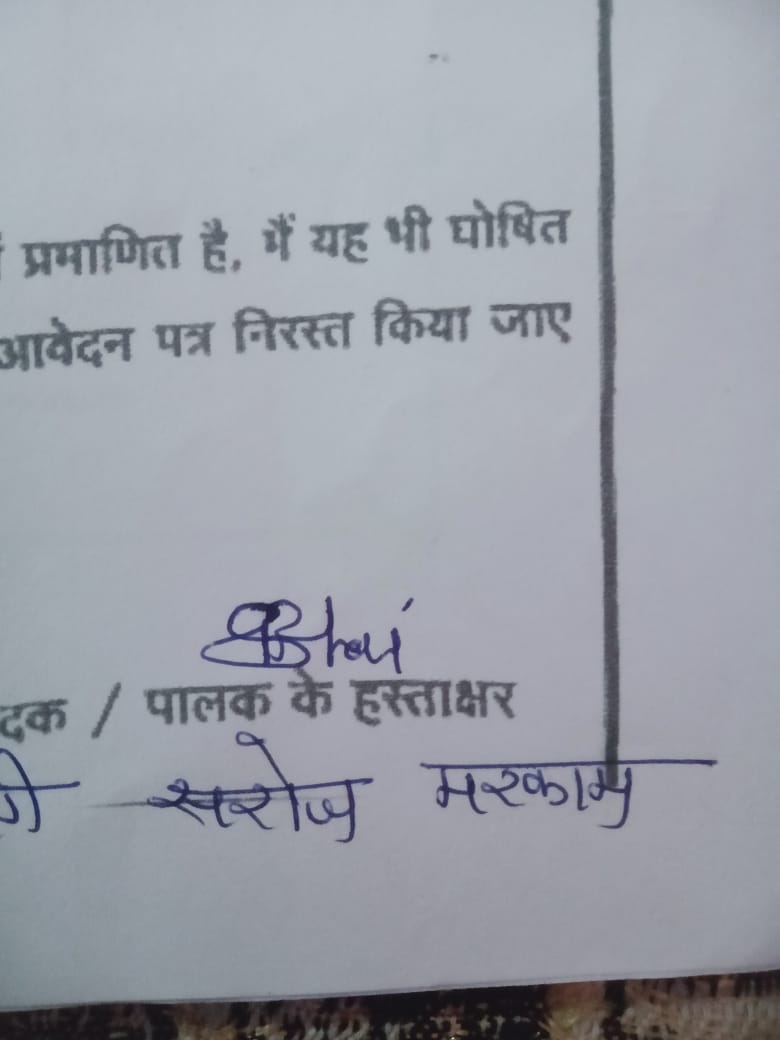 प्रमाणित है, मैं यह भी घोषित
आवेदन पत्र निरस्त किया जाए
दक / पालक के हस्ताक्षर
सरोज मरकाम